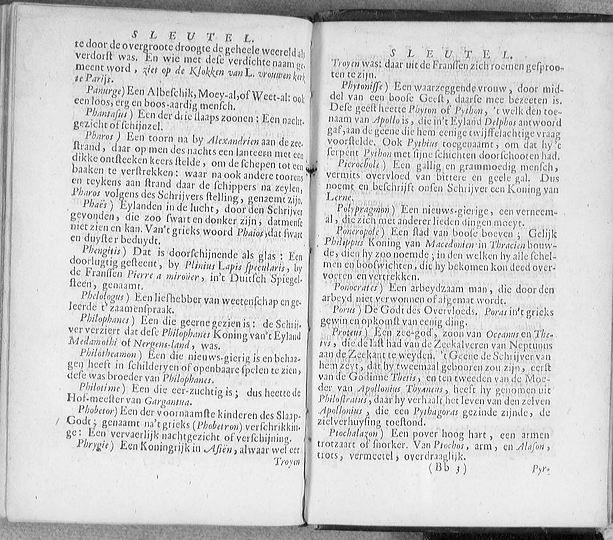 SLEUTEL.
te door de overgroote droogte de geheele weereld als
verdorst was. En wie met dese verdichte naam ge-
meent word, ziet op de Klokken van L. vrouwen kerk
te Parijs.
Panurge) Een Albeschik, Moey-al, of Weet-al: ook
een loos, erg en boos-aardig mensch.
Phantasus) Een der drie slaaps zoonen: Een nacht-
gezicht of schijnzel.
Pharos) Een toorn na by Alexandrien aan de zee-
strand, daar op men des nachts een lanteern met een
dikke ontsteeken keers stelde, om de schepen tot een
baaken te verstrekken: waar na ook andere toorens
en teykens aan strand daar de schippers na zeylen,
Pharos volgens des Schrijvers stelling, genaemt zijn.
Phaës) Eylanden in de lucht, door den Schrijver
gevonden, die zoo swart en donker zijn, datmense
niet zien en kan. Van't grieks woord Phaios, dat swart
en duyster beduydt.
Phengitis) Dat is doorschijnende als glas: Een
doorlugtig gesteent, by Plinius Lapis specularis, by
de Franssen Pierre a miroüer, in't Duitsch Spiegel-
steen, genaamt.
Phelologus) Een liefhebber van weetenschap en ge-
leerde t'zaamenspraak.
Philophanes) Een die geerne gezien is: de Schrij-
ver verziert dat dese Philophanes Koning van't Eyland
Medamothi of Nergens-land, was.
Philotheamon) Een die nieuws-gierig is en behaa-
gen heeft in schilderyen of openbaare spelen te zien,
dese was broeder van Philophanes.
Philotime) Een die eer-zuchtig is; dus heette de
Hof-meester van Gargantua.
Phobetor) Een der voornaamste kinderen des Slaap-
Godt; genaamt na't grieks (Phobetron) verschrikkin-
ge: Een vervaerlijk nachtgezicht of verschijning.
Phrygie) Een Koningrijk in Asiën, alwaar wel eer
Troyen
SLEUTEL.
Troyen was: daar uit de Franssen zich roemen gesproo-
ten te zijn.
Phytonisse) Een waarzeggende vrouw, door mid-
del van een boose Geest, daarse mee bezeeten is.
Dese geest heette Phyton of Python, 't welk den toe-
naam van Apollo is, die in't Eyland Delphos antwoord
gaf, aan de geene die hem eenige twijffelachtige vraag
voorstelde. Ook Pythius toegenaamt, om dat hy 't
serpent Python met sijne schichten doorschooten had.
Picrochole) Een gallig en grammoedig mensch,
vermits overvloed van bittere en geele gal. Dus
noemt en beschrijft onsen Schrijver een Koning van
Lerne.
Polypragmon) Een nieuws-gierige, een verneem-
al, die zich met anderer lieden dingen moeyt.
Poneropole) Een stad van boose boeven; Gelijk
Philippus Koning van Macedonien in Thracien bouw-
de, dien hy zoo noemde; in den welken hy alle schel-
men en booswichten, die hy bekomen kon deed over-
voeren en vertrekken.
Ponocrates) Een arbeydzaam man, die door den
arbeyd niet verwonnen of afgemat wordt.
Porus) De Godt des Overvloeds. Poras in't grieks
gewin en opkomst van eenig ding.
Proteus) Een zee-god, zoon van Oceanus en The-
tis, die de last had van de Zeekalveren van Neptunus
aan de Zeekant te weyden. 't Geene de Schrijver van
hem zeyt, dat hy tweemaal gebooren zou zijn, eerst
van de Godinne Thetis, en ten tweeden van de Moe-
der van Apollonius Thyaneus, heeft hy genomen uit
Philostratus, daar hy verhaalt het leven van den zelven
Apollonius, die een Pythagoras gezinde zijnde, de
zielverhuysing toestond.
Ptochalazon) Een pover hoog hart, een armen
trotzaart of snorker. Van Ptochos, arm, en Alason,
trots, vermeetel, overdraaglijk.
(Bb 3)
Pyr-